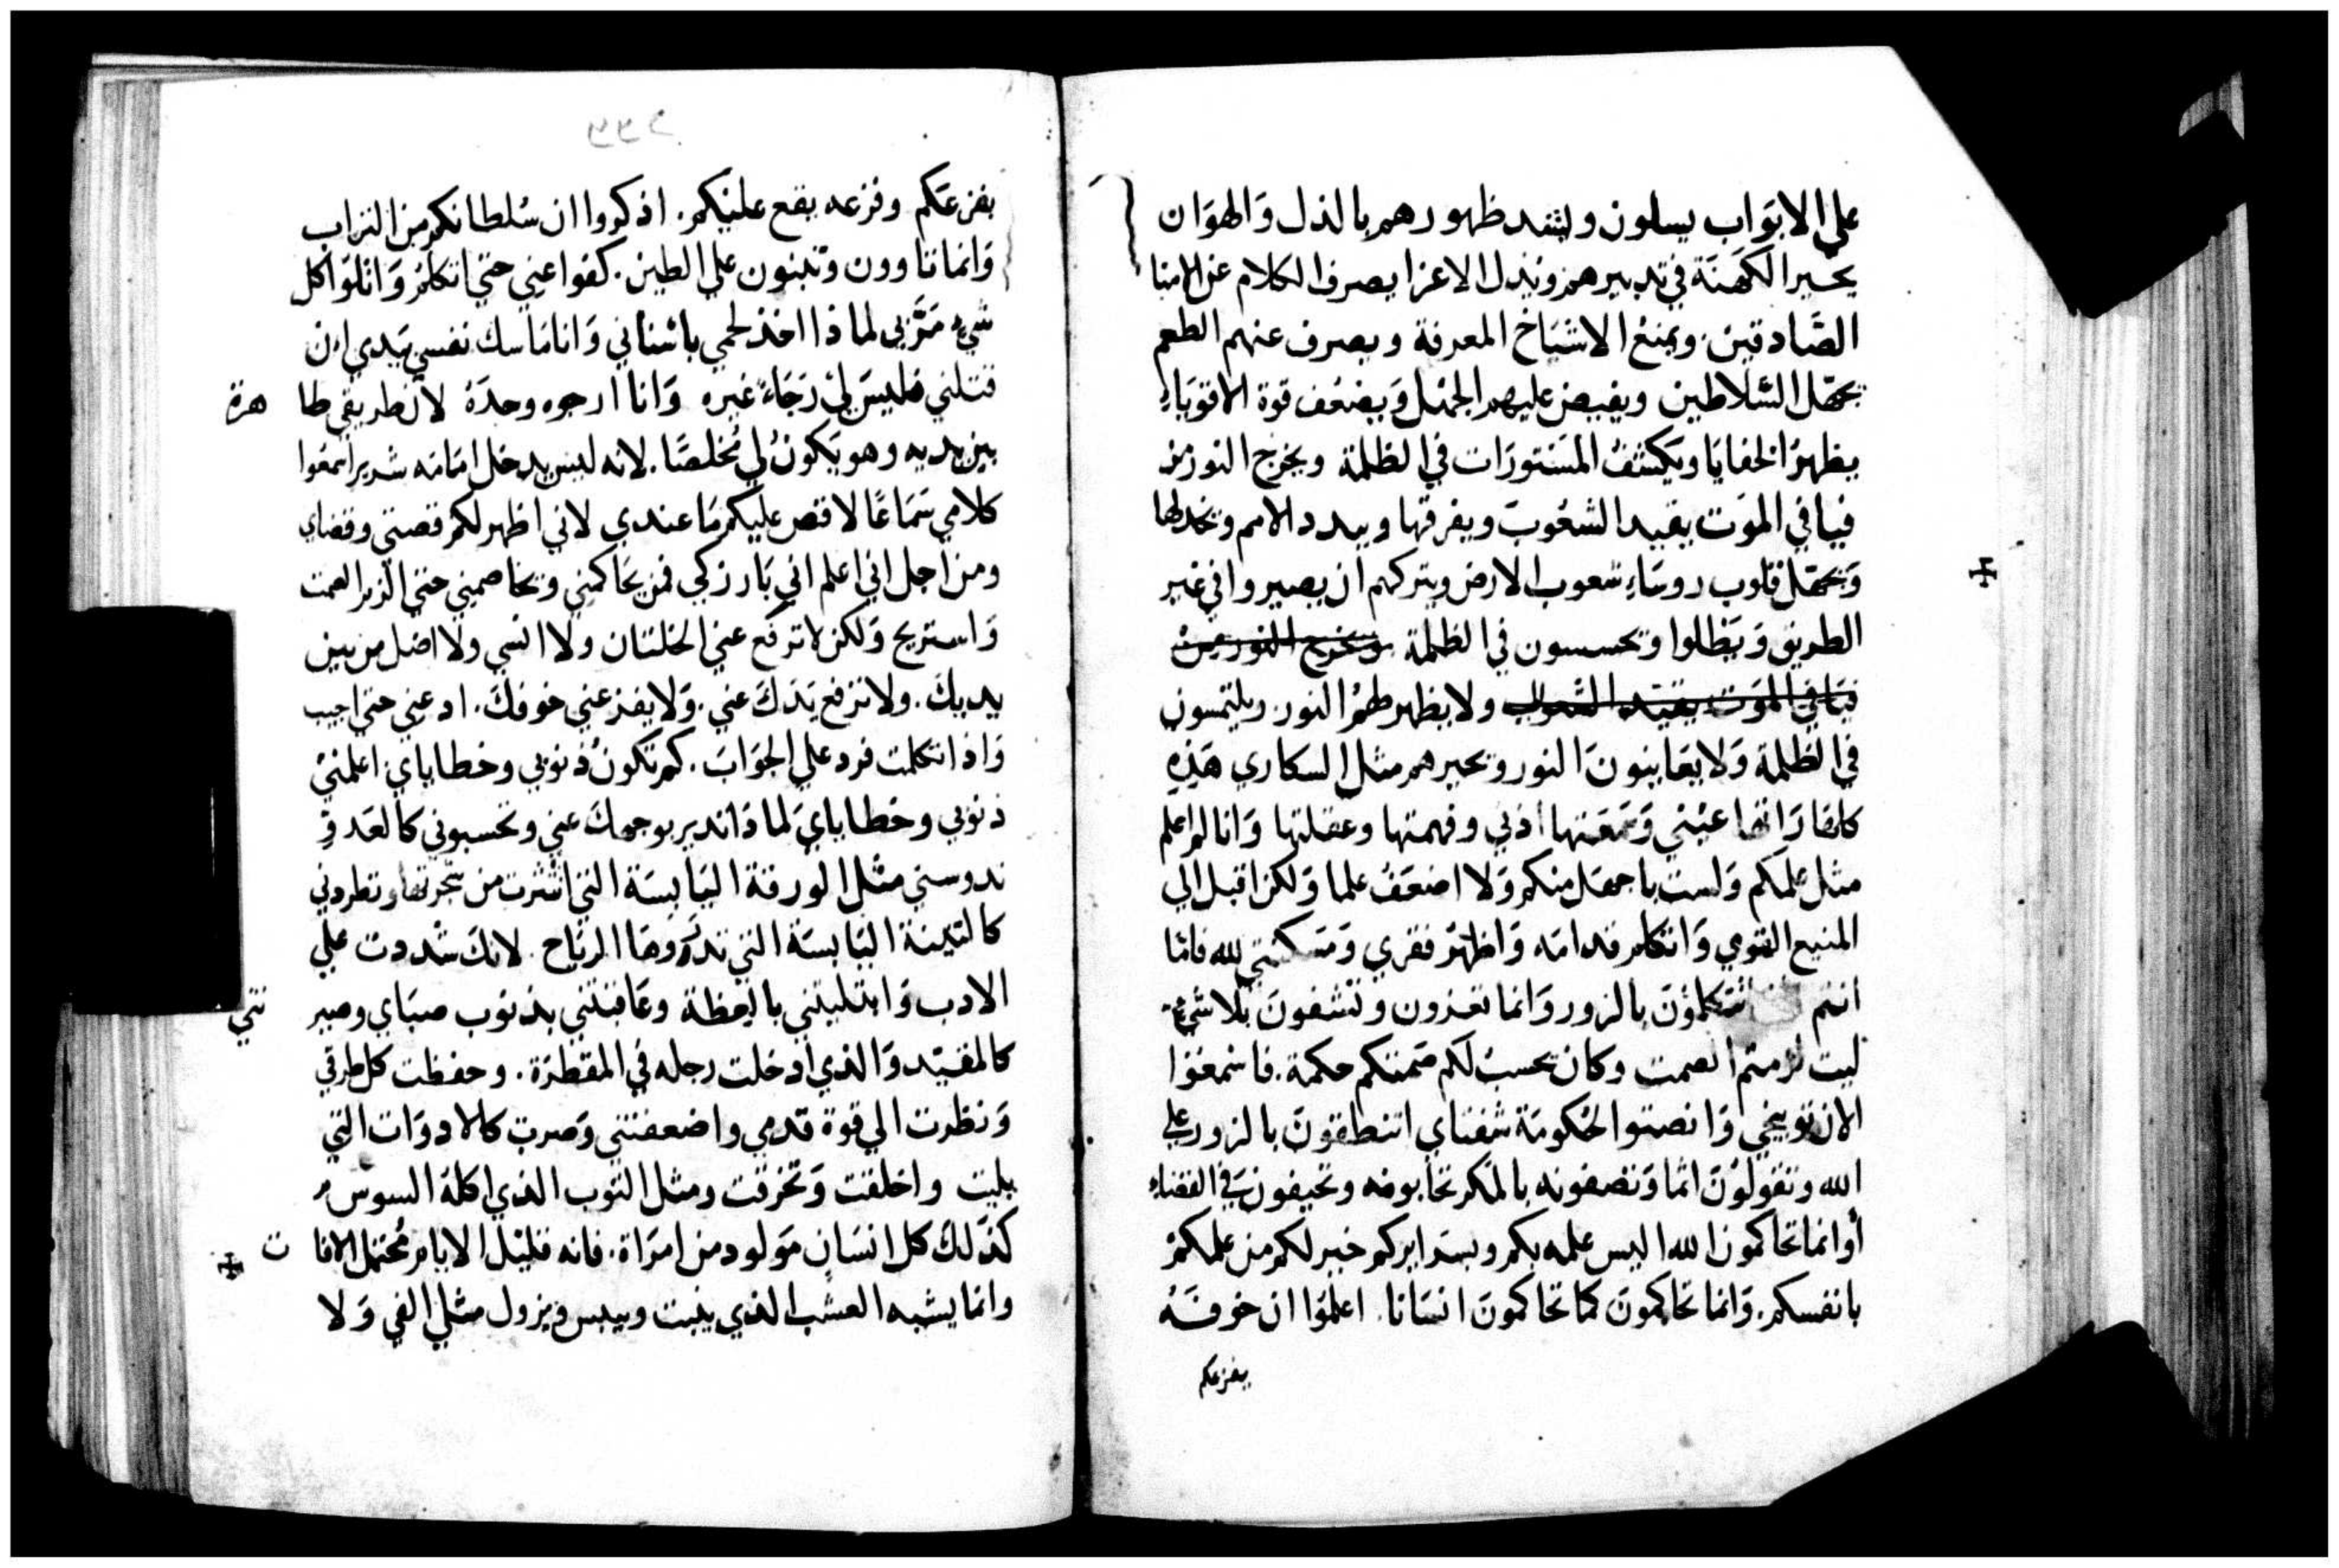 علي الابوَاب يسلون ويشد ظهورهم بالذل وَالهوَان
يحير الكهنَة في تدبيرهم ويذل الاعزا يصرف الكلام عن الامنا
الصَّادقين. ويمنع الاشيَاخ المعرفة ويصرف عنهم الطعم
يجهّل السَّلاطين ويفيض عليهم الجهل وَيضعُف قوة الاقويَاءِ
يظهرُ الخفايَا ويَكشفُ المسَتورَات في الظلمة ويخرج النور من
فيافي الموَت يقيد الشعُوبَ ويفرقها ويبدد الامم ويخذلها
وَيجهّل قلوب روسَاءِ شعوب الارض ويتركهم ان يصيروا في غير
الطريق وَيَظلوا ويحسسون في الظلمة ويخرج النور من
فيَافي الموَت يقيد الشعوب ولا يظهر لهُم النور ويلتمسون
في الظلمة وَلا يعَاينونَ النور ويحيرهم مثل السكاري هَذِهِ
كلها رَاتها عيْني وَسَمعَتها أذني وفهمتها وعقلتها وَانا لم اعلم
مثل علمكم وَلست باجهَل منكم وَلا اضعَفُ علما وَلكن اقبل الي
المنيع القوي وَاتكلم قدامَه وَاظهرُ فقري وَمَسكنتي لله فامّا
انتم تتكلمُونَ بالزور وَانما تعزون وتشفونَ بلا شيءٍ
ليت لزمتم الصمت وكان يحسبُ لكم صَمتكم حكمة. فاسمعُوا
الان توبيخي وَانصتوا لحُكومَة شفتاي اتنطقونَ بالزور علي
الله وتقولوُنَ اثما وَتصفونه بالمكر تحابونه وتحيفون في القضاءِ
أوانما تحاكمون الله اليس علمه بكم وبسَرايركم خير لكم من علمكمْ
بانفسكم. وَانما تحَاكمونَ كمَا تحاكمونَ انسَانا. اعلمَوا ان خوفَهُ
يفزعكم
يفزعَكم وفزعه يقع عليْكم. اذكروا ان سُلطانكم من التراب
وَانما تاوون وتبنون علي الطين. كفوا عيني حتي اتكلمُ وَاتلوَا كل
شيءٍ مَرَّ بي لماذا اخذ لحمي باسْناني وَانا مَاسك نفسي بيَدي ان
قتلني فليسَ ليْ رَجَاءً غيره وَانا ارجوه وحدَهُ لان طريقي طا هرة
بين يديه وهو يَكونُ لي مُخلصًا. لانه ليس يدخل امَامَه شرير اسمعُوا
كلامي سَمَاعًا لاقص عليكم مَا عندي لاني اظهر لكم قصتي وقضاي
ومن اجل اني اعلم اني بَار زكي فمن يحَاكمني ويخاصمني حتي الزم الصمت
وَاستريح وَلكن لا ترفَع عني الخلتان ولا انسي ولا اضل من بين
يديكَ. ولا ترفع يَدَكَ عني. وَلا يفزعني خوفكَ. ادعني حتي اجيب
وَاذا تكلمت فرد علي الجوَابَ. كم تكونُ ذنوبي وخطاياي. اعلمنيْ
ذنوبي وخطاياي لماذا تدير بوجهكَ عني وتحسبوني كالعَدوِّ
تدوسني مثل الورقة اليَابسَة التي انتثرت من شجرتها وتطردني
كالتبنة اليَابسَة التي تذروهَا الرياح. لانكَ شدَدت علي
الادب وَابتليتني باليقظة وعَاقبتني بذنوب صبَاي وصير تني
كالمقيّد وَالذي ادخلت رجله في المقطرَة. وحفظت كل طرقي
وَنظرت الي قوة قدمي واضعفتني وَصرت كالادوَات التي
بليت واخلقت وَتخرقت ومثل الثوب الذي اكلهُ السوسْ
كذَلكَ كل انسَانٍ مَولود من امرَاة. فانه قليْل الايام مُحتمل الافا ت
وانما يشبه العشب الذي ينبت وييبس ويزول مثلي الفي وَلا